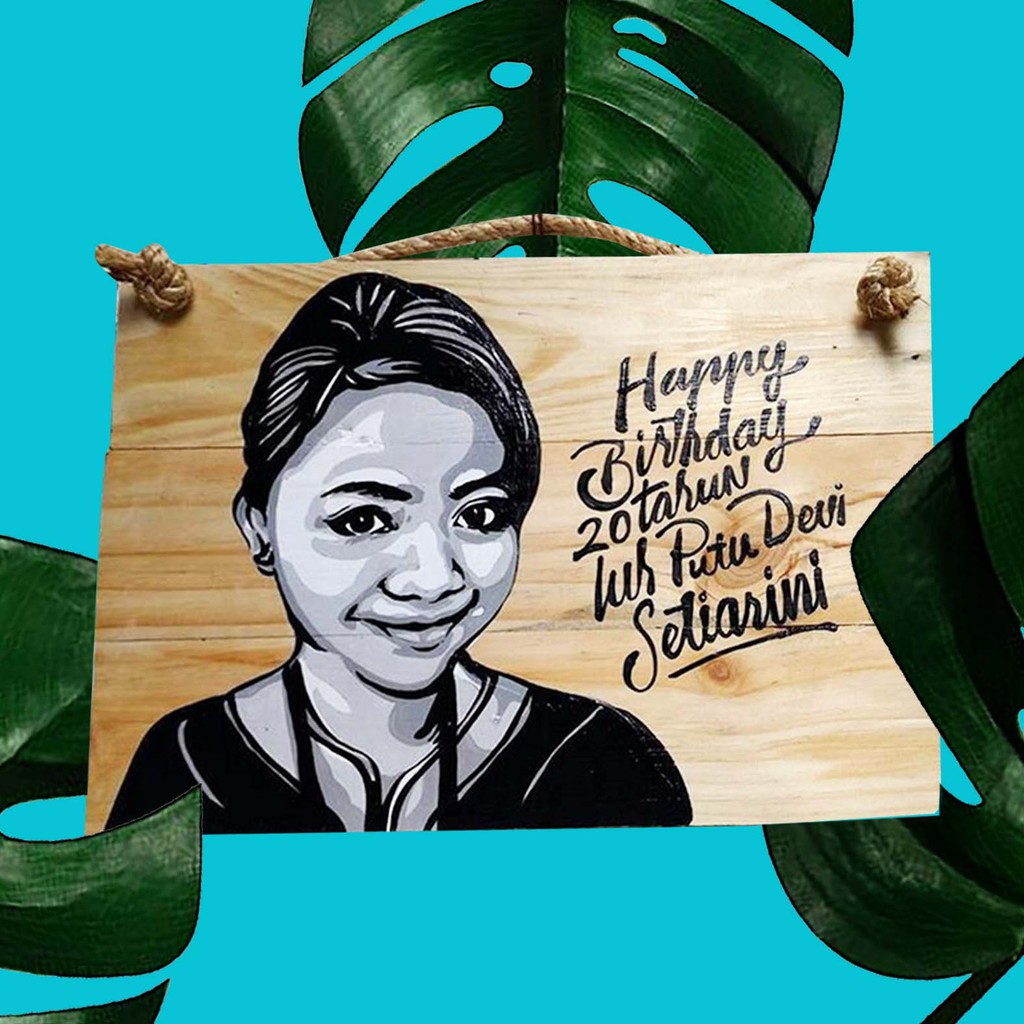 Happy
Birthday
20 tahun
luh Putu Devi
Setiarini